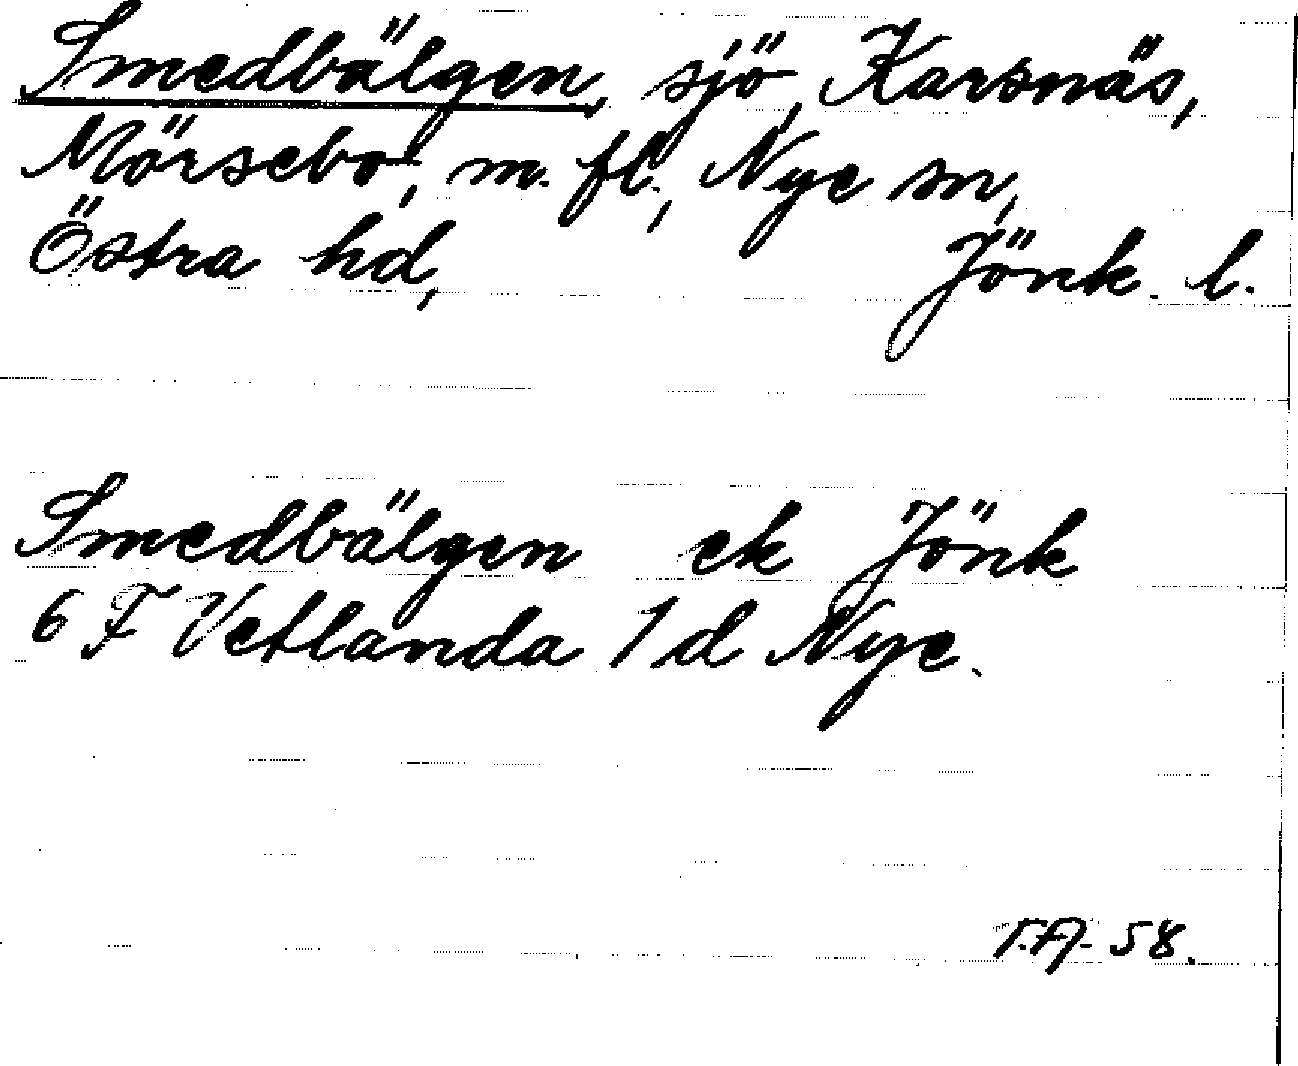 Smedbälgen, sjö, Karsnäs,
Mörsebo, m. fl., Nye sn,
Östra hd, Jönk. l.
Smedbälgen ek Jönk
6 F Vetlanda 1 d Nye.
T.A. 58.